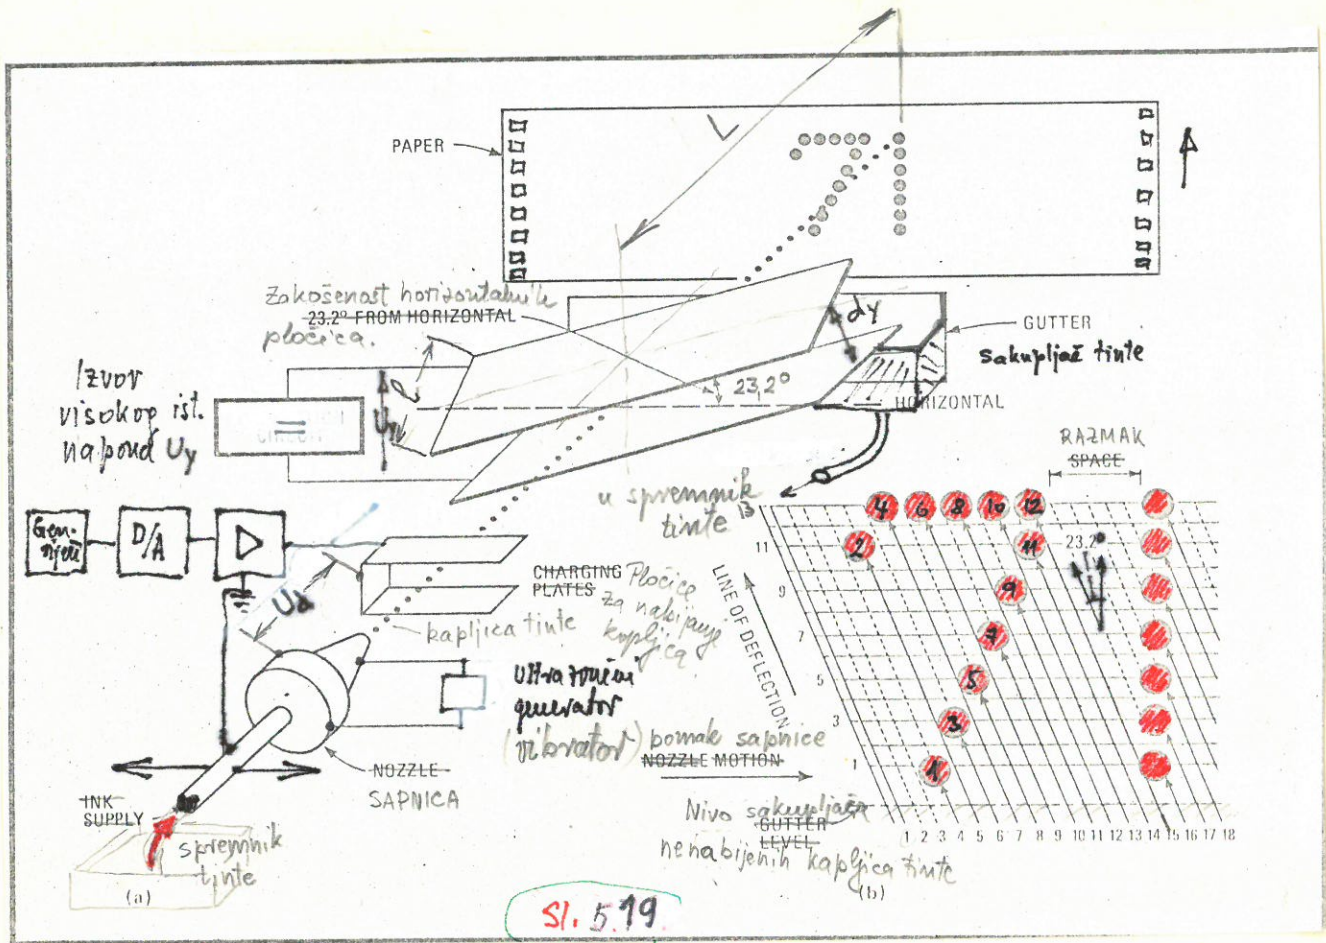 PAPER
L
Zakošenost horizontalnih
23.2° FROM HORIZONTAL
pločica.
dy
GUTTER
sakupljač tinte
Izvor
visokog ist.
napona Uy
=
Uy
l
23,2°
HORIZONTAL
RAZMAK
SPACE
u spremnik
tinte
D/A
CHARGING
PLATES
Pločice
za nabijanje
kapljica
kapljica tinte
Ultrazvučni
generator
(vibrator)
NOZZLE
SAPNICA
INK
SUPPLY
spremnik
tinte
(a)
pomak sapnice
NOZZLE MOTION
LINE OF DEFLECTION
13
11
9
7
5
3
1
4 6 8 10 12
2 11
23.2°
9
7
5
3
1
Nivo sakupljača
GUTTER
LEVEL
nenabijenih kapljica tinte
1 2 3 4 5 6 7 8 9 10 11 12 13 14 15 16 17 18
(b)
Sl. 5.19.